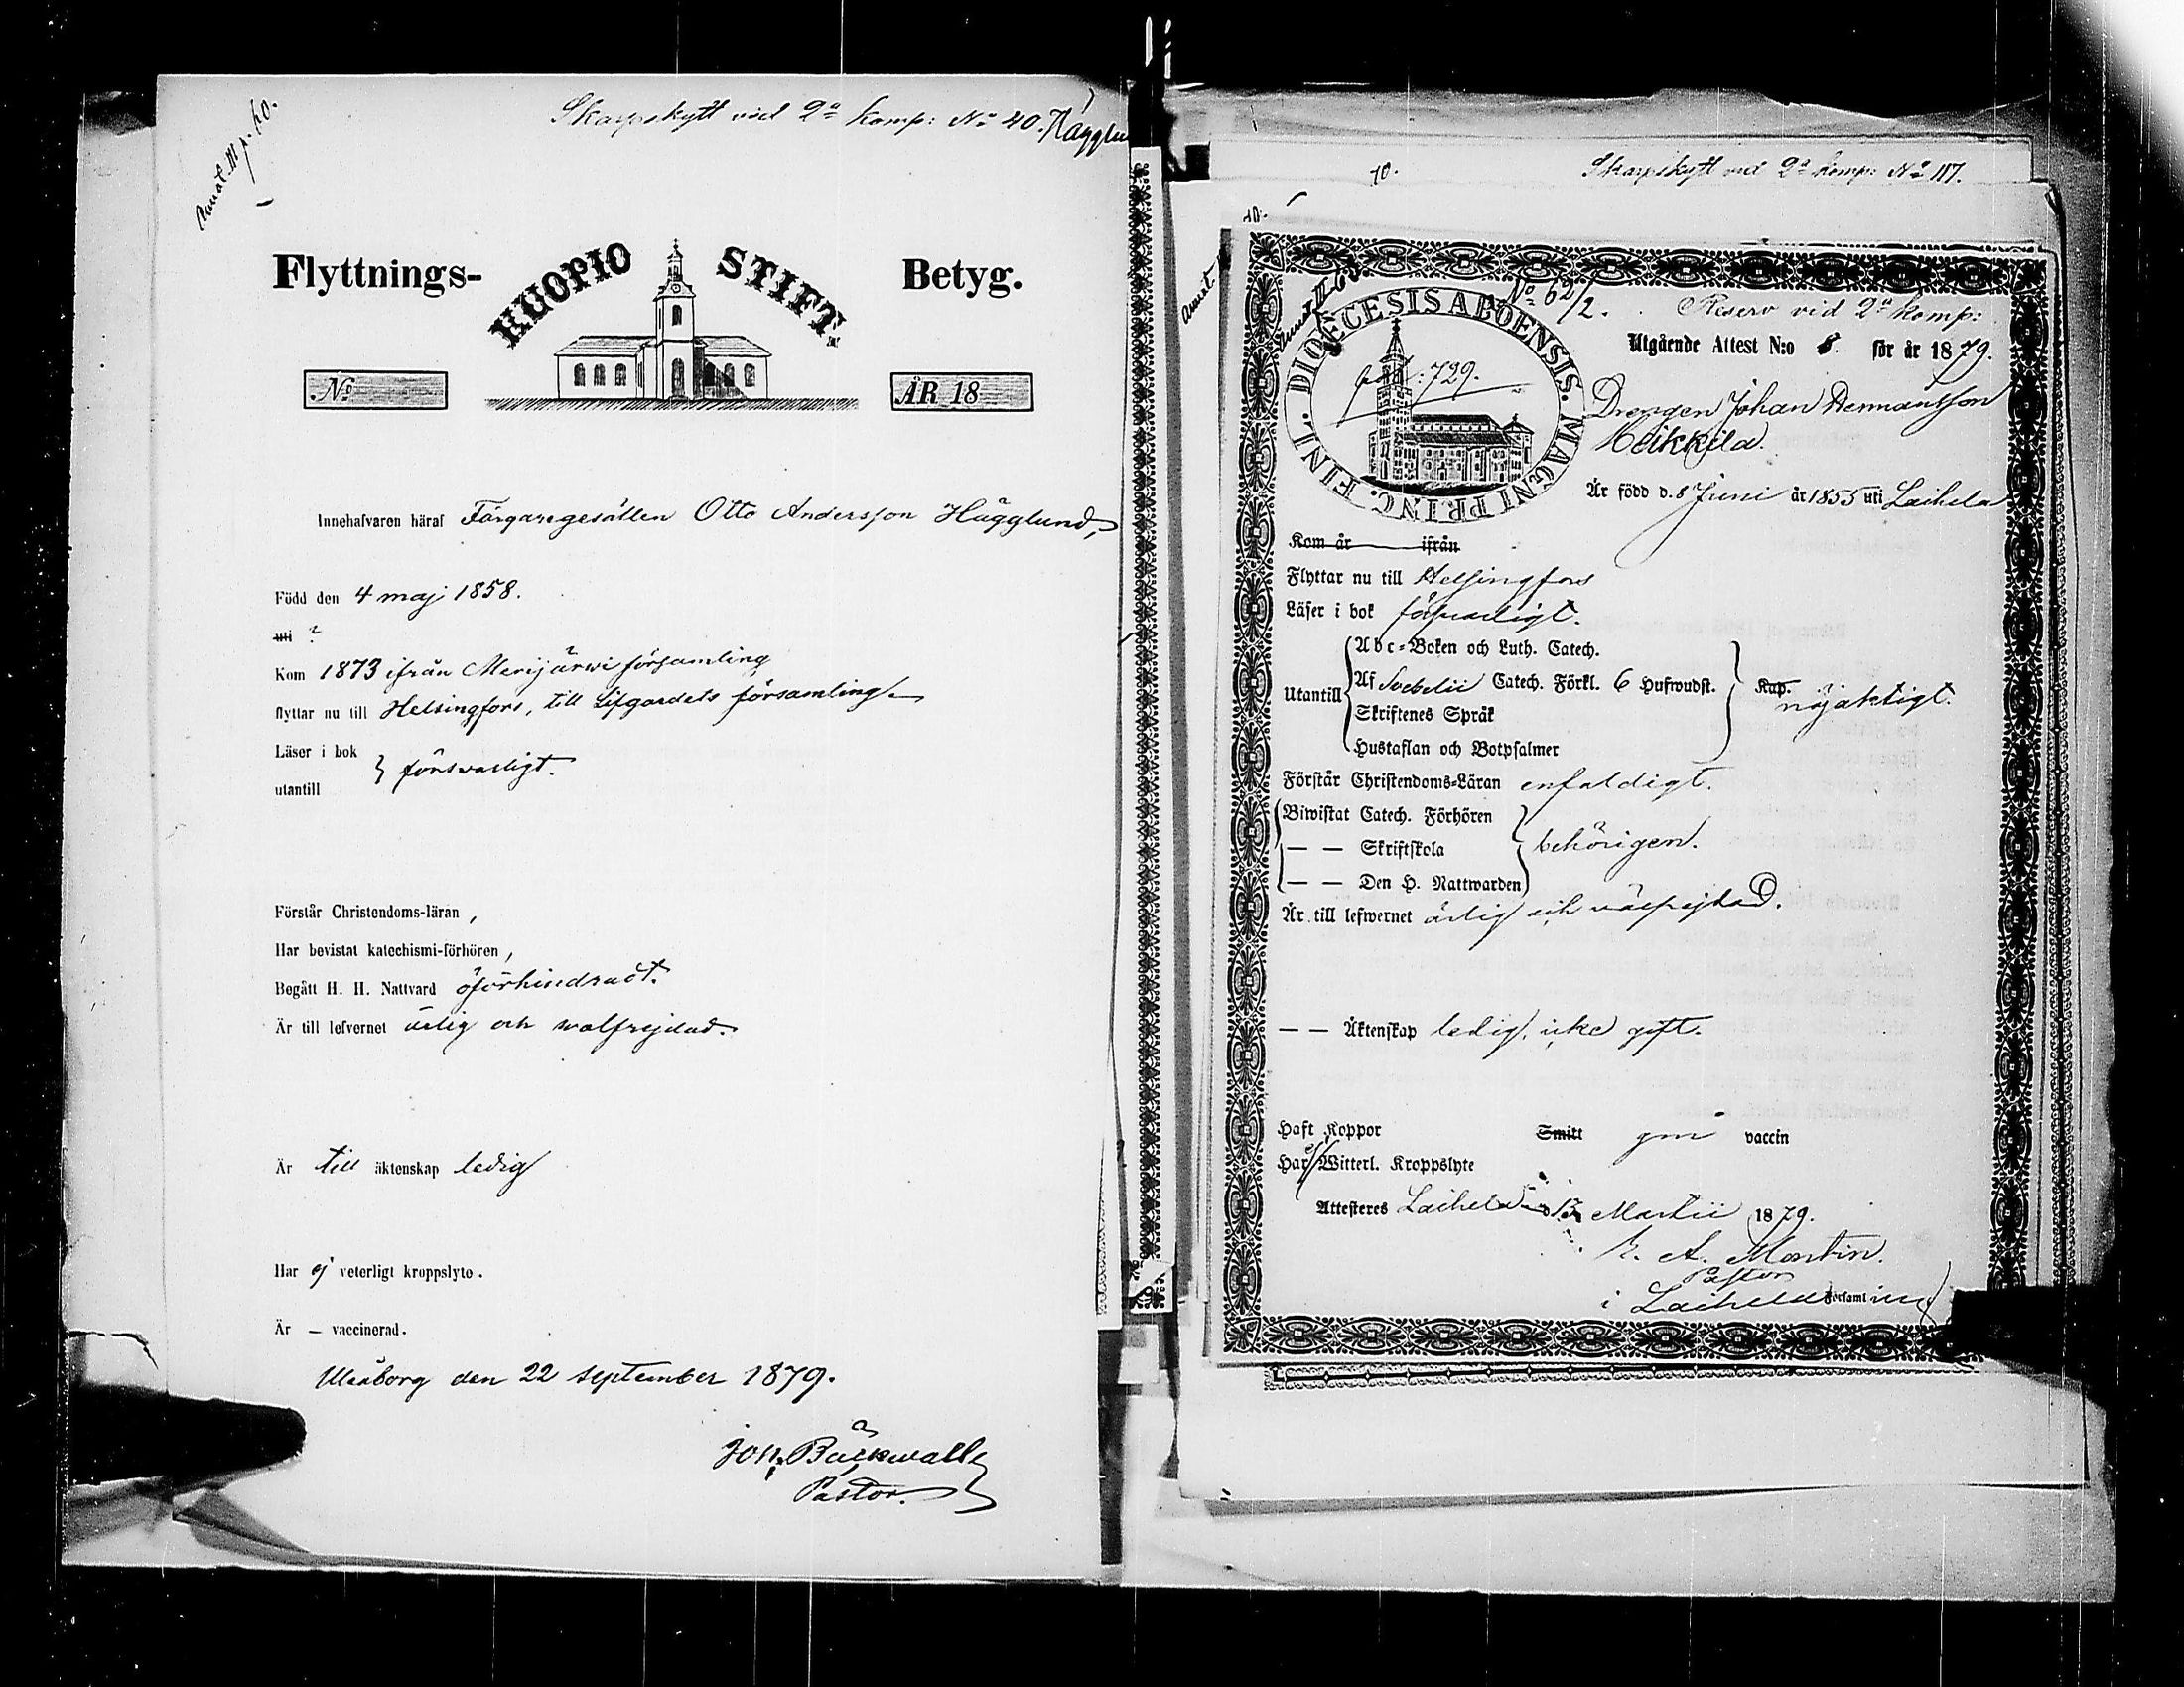 Skarpskytt vid 2a Komp: No 40. Hägglu
Flyttnings- KUOPIO STIFT Betyg.
No ÅR 18
Innehafvaren häraf Färgaregesällen Otto Andersson Hägglund,
Född den 4 maj 1858.
uti ?
Kom 1873 ifrån Merijärwi församling
flyttar nu till Helsingfors, till Lifgardets församling.
Läser i bok
utantill } försvarligt.
Förstår Christendoms-läran,
Har bevistat katechismi-förhören,
Begått H. H. Nattvard oförhindradt.
Är till lefvernet ärlig och wälfrejdad.
Är till äktenskap ledig
Har ej veterligt kroppslyte.
Är – vaccinerad.
Uleåborg den 22 september 1879.
Joh. Bäckwall
Pastor.
10. Skarpskytt vid 2a Komp: No 117.
No 62/2. Reserv vid 2a Komp:
DIOECESIS ABOENSIS. MAGNI PRINC. FINL.
pag: 729.
Utgående Attest N:o 8. för år 1879.
Drengen Johan Hermansson
Heikkilä.
Är född d. 8 Juni år 1855 uti Laihela
Kom år ifrån
Flyttar nu till Helsingfors
Läser i bok försvarligt.
Utantill { Abc-Boken och Luth. Catech.
Af Svebelii Catech. Förkl. 6 Hufwudst. Kap.
Skriftenes Språk
Hustaflan och Botpsalmer } nöjaktigt.
Förstår Christendoms-Läran enfaldigt.
Biwistat Catech. Förhören
— — Skriftskola } behörigen.
— — Den H. Nattwarden
Är till lefwernet ärlig och välfrejdad.
— — Äktenskap ledig, icke gift.
Haft Koppor Smitt gm vaccin
Har Witterl. Kroppslyte
Attesteres Laihela d. 13 Martii 1879.
A. Montin.
Pastor
i Laihela Församling